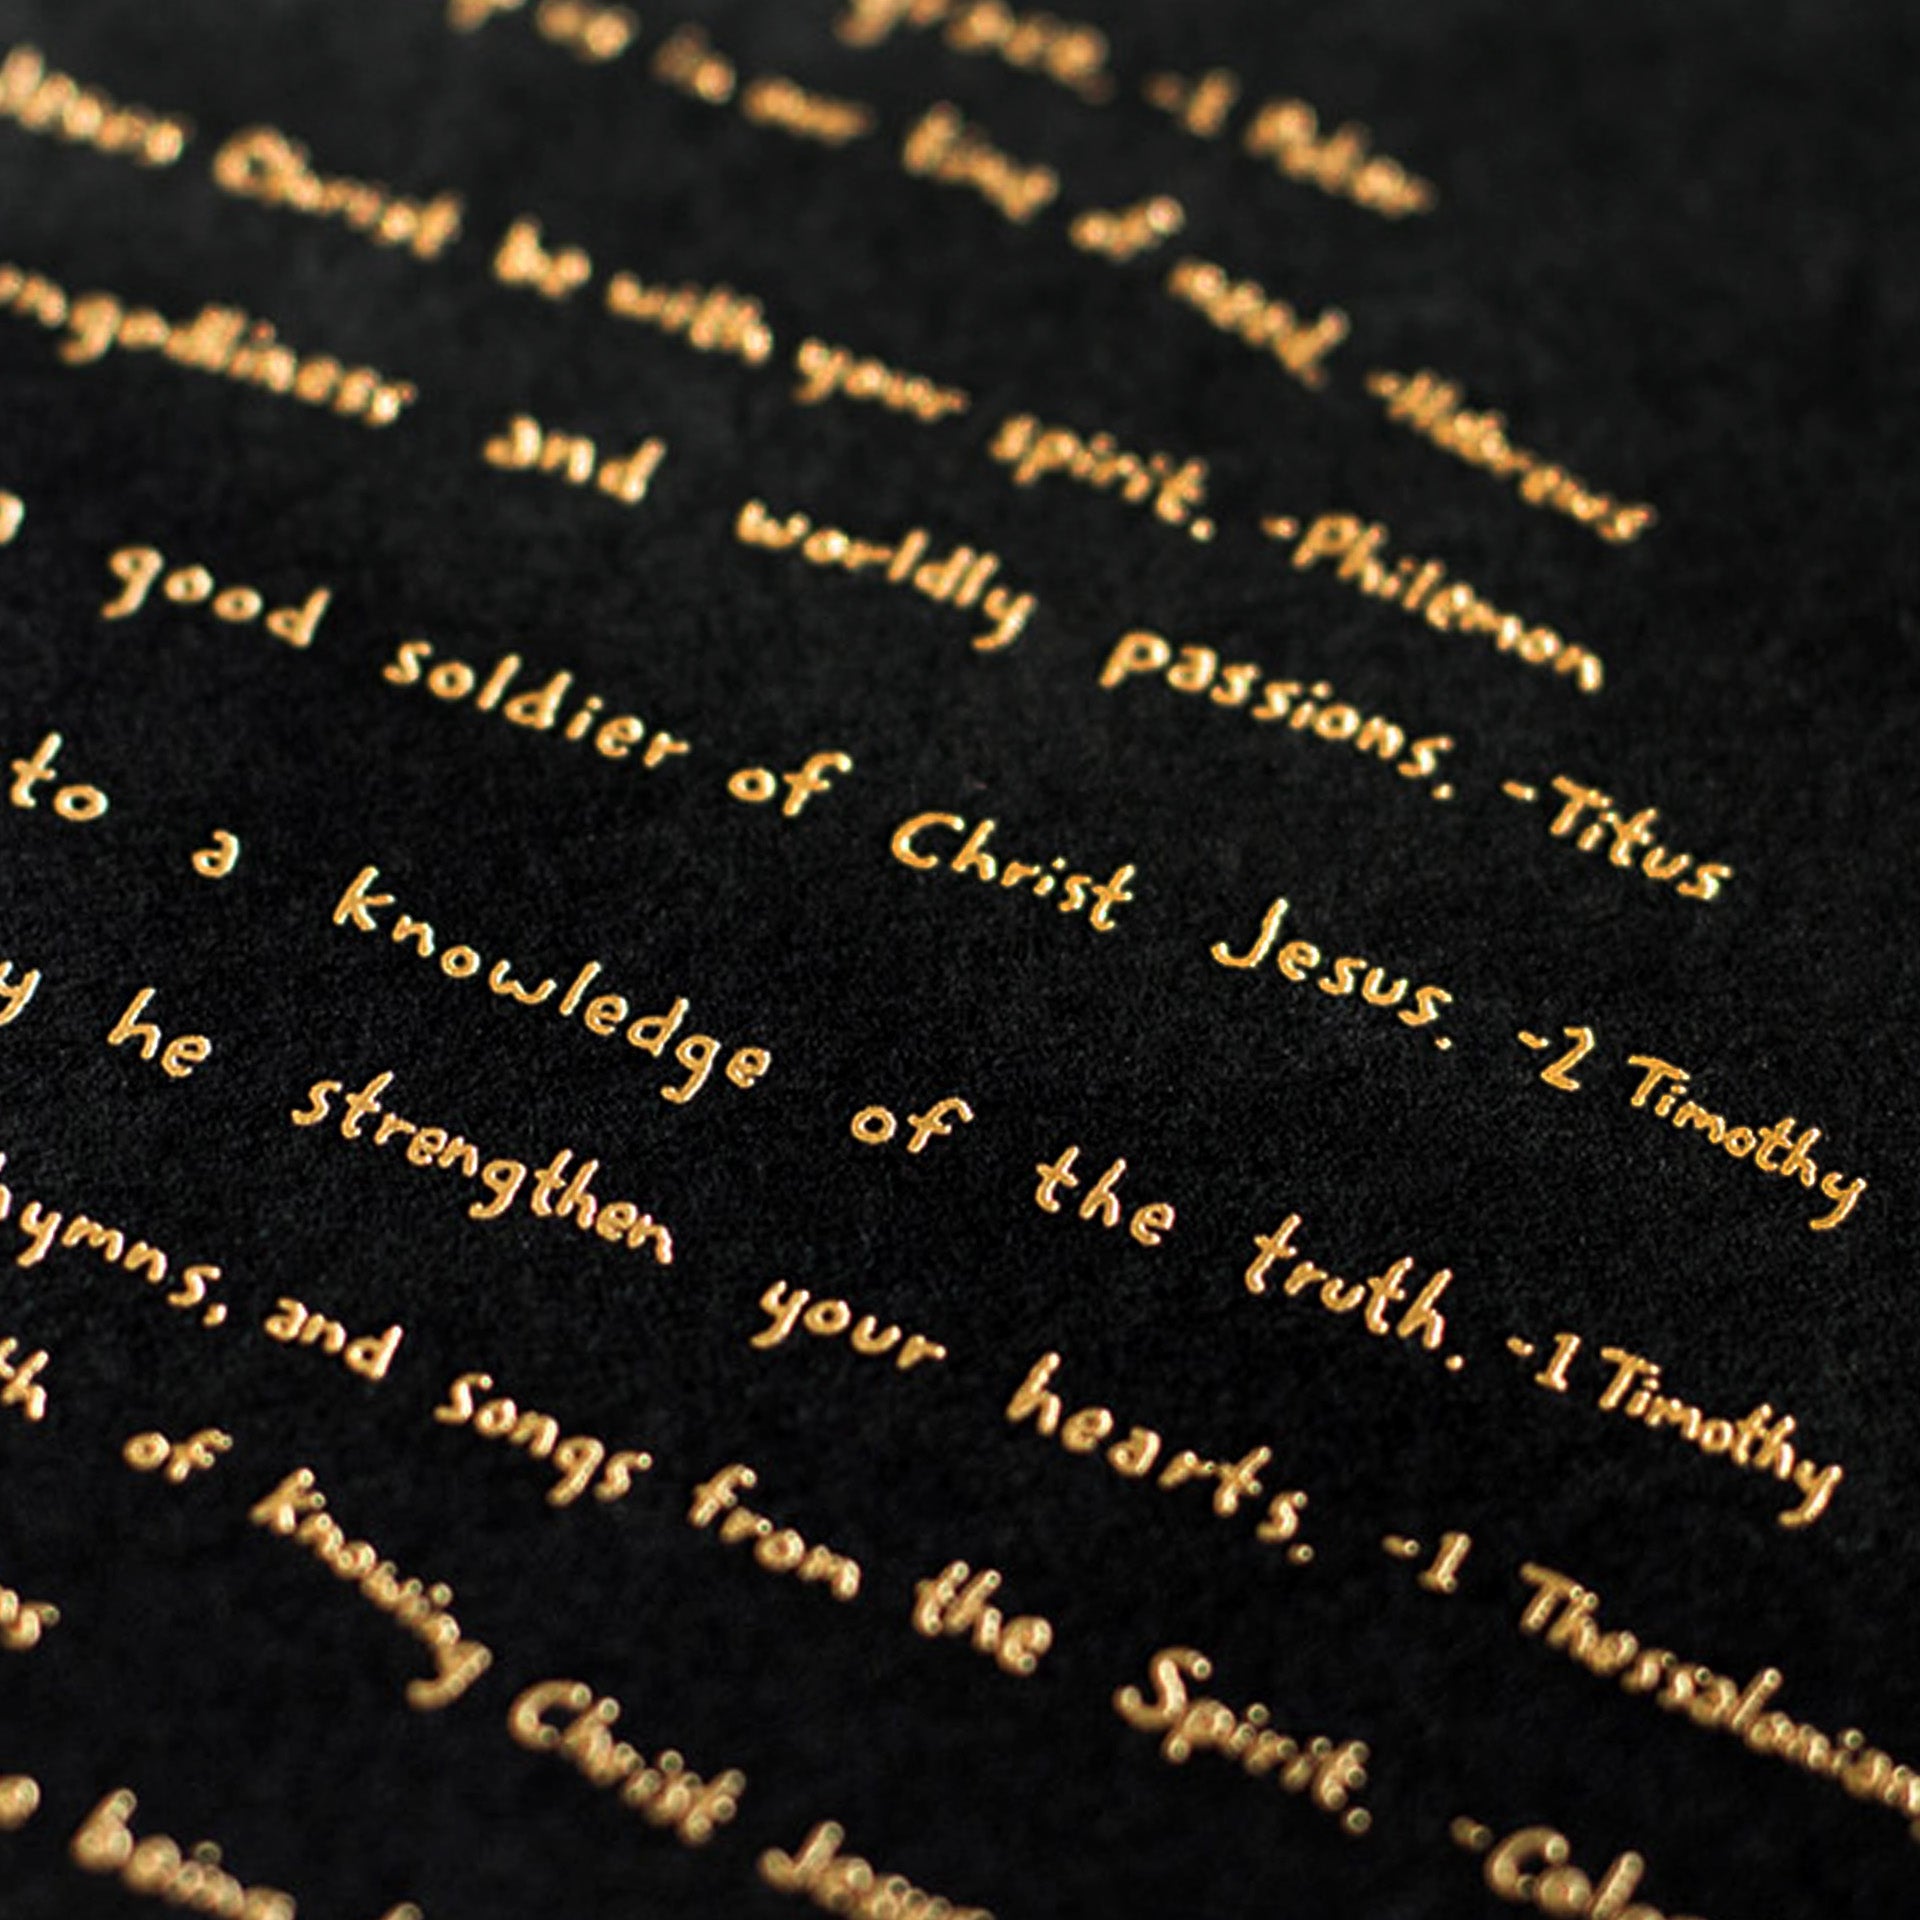 grace. -1 Peter
in our time of need. -Hebrews
Christ be with your spirit. -Philemon
and worldly passions. -Titus
good soldier of Christ Jesus. -2 Timothy
to a knowledge of the truth. -1 Timothy
he strengthen your hearts. -1 Thessalonians
hymns, and songs from the Spirit.
of knowing Christ Jesus
being